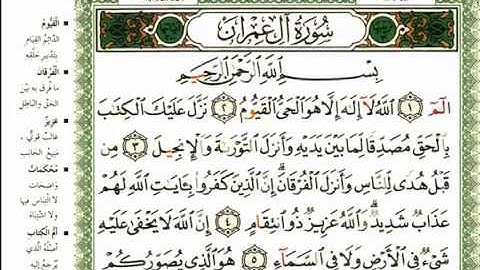 سُورَةُ آلِ عِمْرَانَ
بِسْمِ اللَّهِ الرَّحْمَٰنِ الرَّحِيمِ
الٓمٓ ١ اللَّهُ لَآ إِلَٰهَ إِلَّا هُوَ الْحَيُّ الْقَيُّومُ ٢ نَزَّلَ عَلَيْكَ الْكِتَٰبَ
بِالْحَقِّ مُصَدِّقًا لِّمَا بَيْنَ يَدَيْهِ وَأَنزَلَ التَّوْرَىٰةَ وَالْإِنجِيلَ ٣ مِن
قَبْلُ هُدًى لِّلنَّاسِ وَأَنزَلَ الْفُرْقَانَ ۗ إِنَّ الَّذِينَ كَفَرُوا بِـَٔايَٰتِ اللَّهِ لَهُمْ
عَذَابٌ شَدِيدٌ ۗ وَاللَّهُ عَزِيزٌ ذُو انتِقَامٍ ٤ إِنَّ اللَّهَ لَا يَخْفَىٰ عَلَيْهِ
شَيْءٌ فِي الْأَرْضِ وَلَا فِي السَّمَآءِ ٥ هُوَ الَّذِي يُصَوِّرُكُمْ
الْقَيُّومُ
الدَّائِمُ الْقِيَامِ
بِتَدْبِيرِ خَلْقِهِ
الْفُرْقَانَ
مَا فُرِقَ بِهِ بَيْنَ
الْحَقِّ وَالْبَاطِلِ
عَزِيزٌ
غَالِبٌ قَوِيٌّ،
مَنِيعُ الْجَانِبِ
مُحْكَمَاتٌ
وَاضِحَاتٌ
لَا الْتِبَاسَ فِيهَا
وَلَا اشْتِبَاهَ
أُمُّ الْكِتَابِ
أَصْلُهُ الَّذِي
يُرْجَعُ إِلَيْهِ